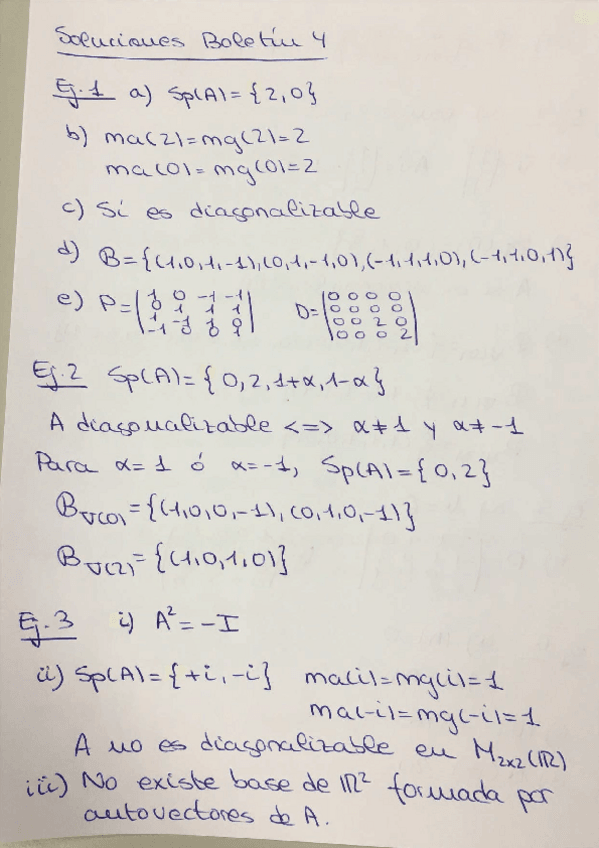 Soluciones Boletín 4
Ej.1 a) Sp(A)={2,0}
b) ma(2)=mg(2)=2
ma(0)=mg(0)=2
c) Sí es diagonalizable
d) B={(1,0,1,-1),(0,1,-1,0),(-1,1,1,0),(-1,1,0,1)}
e) P= D=
1 0 -1 -1 0 0 0 0
0 1 1 1 0 0 0 0
1 -1 1 0 0 0 2 0
-1 0 0 1 0 0 0 2
Ej.2 Sp(A)={0,2,1+α,1-α}
A diagonalizable <=> α≠1 y α≠-1
Para α=1 ó α=-1, Sp(A)={0,2}
B_V(0)={(1,0,0,-1),(0,1,0,-1)}
B_V(2)={(1,0,1,0)}
Ej.3 i) A²=-I
ii) Sp(A)={+i,-i} ma(i)=mg(i)=1
ma(-i)=mg(-i)=1
A no es diagonalizable en M₂ₓ₂(ℝ)
iii) No existe base de ℝ² formada por
autovectores de A.